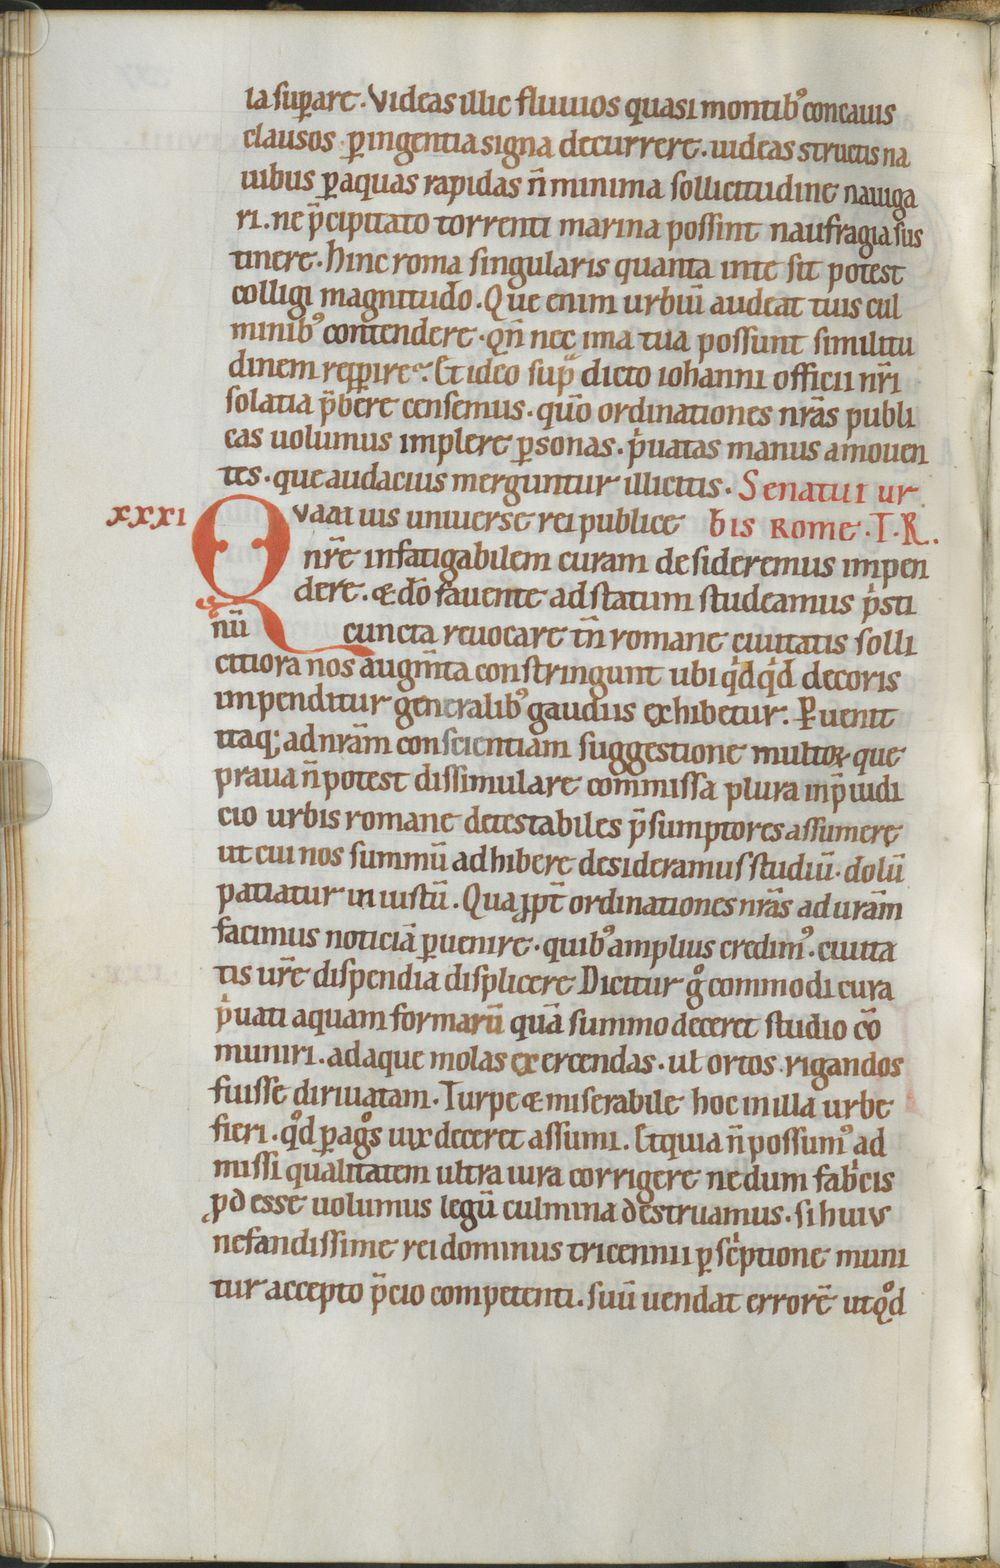 la sup̱are. Videas illic fluuios quasi montib᾽ concauis
clausos. ꝑ ingentia signa decurrere. uideas structis na
uibus ꝑ aquas rapidas n̄ minima sollicitudine nauiga
ri. ne p̄cipitato torrenti marina possint naufragia sus
tinere. Hinc roma singularis quanta in te sit potest
colligi magnitudo. Que enim urbiū audeat tuis cul
minib᾽ contendere. qn̄ nec ima tua possunt similitu
dinem reꝑire. Et ideo sup͛ dicto iohanni officii nr̄i
solatia p̄bere censemus. quo̅ ordinationes nrās publi
cas uolumus implere ꝑsonas. pͥuatas manus amouen
tes. que audacius merguntur illicitis. Senatui ur
xxxi Quam uis uniuerse rei publice bis Rome. T. R.
nr̄e infatigabilem curam desideremus impen
dere. & do̅ fauente ad statum studeamus pͥsti
nū cuncta reuocare tn̄ romane ciuitatis solli
citiora nos augm̄ta constringunt ubi qͥdqͥd decoris
impenditur generalib᾽ gaudiis exhibetur. Ꝑuenit
itaq; ad nrām conscientiam suggestione multoꝝ que
praua n̄ potest dissimulare commissa plura inp̄iudi
cio urbis romane detestabiles p̄sumptores assumere
ut cui nos summū adhibere desideramus studiū. dolū
patiatur in iustū. Quaꝓpt̄ ordinationes nrās ad urām
facimus noticiā ꝑuenire. quib᾽ amplius credim᾽. ciuita
tis ur̄e dispendia displicere Dicitur gͦ commodi cura
pͥuati aquam formarū quā summo deceret studio co̅
muniri. ad aque molas exercendas. ul ortos rigandos
fuisse diriuatam. Turpe & miserabile hoc in illa urbe
fieri. qͦd ꝑ agͦs uix deceret assumi. Et quia n̄ possum᾽ ad
missi qualitatem ultra iura corrigere ne dum fabͥcis
ꝓd esse uolumus legū culmina destruamus. si huiv
nefandissime rei dominus tricennii ꝑscͥptione muni
tur accepto p̄cio competenti. suū uendat errorē ut qͦd